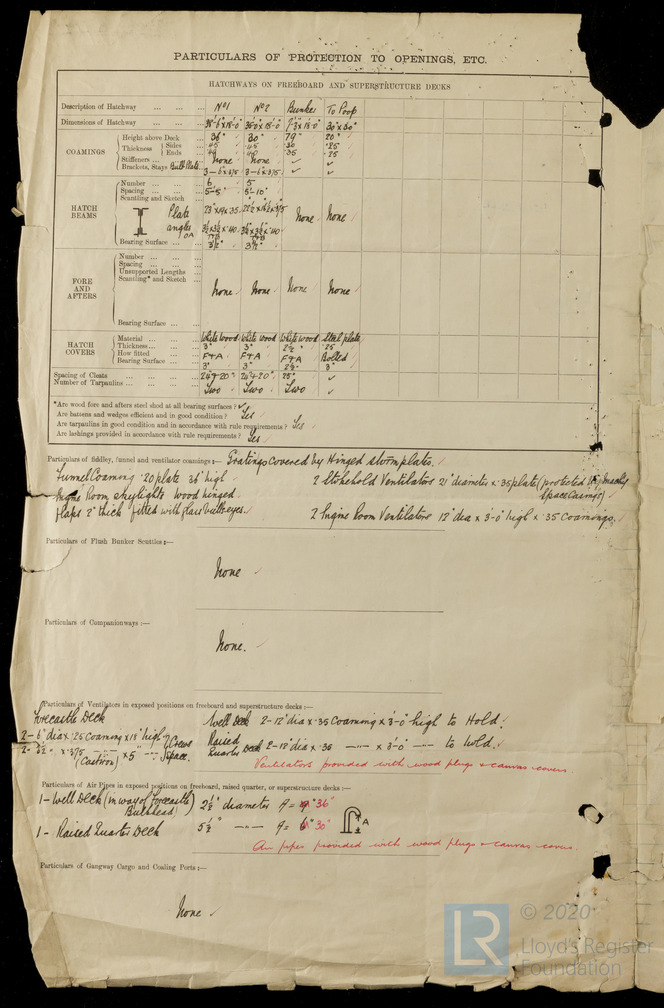 PARTICULARS OF PROTECTION TO OPENINGS, ETC.
HATCHWAYS ON FREEBOARD AND SUPERSTRUCTURE DECKS
Description of Hatchway ... ... ... No 1 No 2 Bunker To Poop
Dimensions of Hatchway ... ... ... 18'-0" 18'-0" 18'-0" 30" x 30"
COAMINGS
Height above Deck 36" 30" 79" 20"
Thickness { Sides ... .45 .45 .30 .25
Ends ... .35 .25
Stiffeners ... None None ✓ ✓
Brackets, Stays Bulb Plate 3 – 6 x 3/5 3 – 6 x 3/5 ✓ ✓
HATCH BEAMS
Number ... ... ... 6 5
Spacing ... ... ... 5'-5" 5'-10"
Scantling and Sketch
Plate None None
angles
Bearing Surface ... ... 3½" 3½"
FORE AND AFTERS
Number ... ... ...
Spacing ... ... ...
Unsupported Lengths ...
Scantling* and Sketch
None None None None
Bearing Surface ... ...
HATCH COVERS
Material ... ... ... White wood White wood White wood Steel plate
Thickness ... ... ... 3" 3" 2½" .25
How fitted ... ... F+A F+A F+A Bolted
Bearing Surface ... ... 3" 3" 2½" 3"
Spacing of Cleats ... ... ... ... 24"+20" 24"+20" 25" ✓
Number of Tarpaulins ... ... ... ... Two Two Two ✓
*Are wood fore and afters steel shod at all bearing surfaces ? ✓
Are battens and wedges efficient and in good condition ? Yes
Are tarpaulins in good condition and in accordance with rule requirements ? Yes
Are lashings provided in accordance with rule requirements ? Yes
Particulars of fiddley, funnel and ventilator coamings :— Gratings covered by Hinged stormplates.
Funnel Coaming .20 plate 36" high 2 Stokehold Ventilators 21" diameter x .35 plate (protected by Machy
Engine Room skylights wood hinged Space Casings)
flaps 2" thick fitted with glass bullseyes. 2 Engine Room Ventilators 12" dia x 3'-0" high x .35 Coamings.
Particulars of Flush Bunker Scuttles :—
None
Particulars of Companionways :—
None.
Particulars of Ventilators in exposed positions on freeboard and superstructure decks :—
Forecastle Deck Well Deck 2-12" dia x .35 Coaming x 3'-0" high to Hold.
2 – 6" dia x .25 Coaming x 18" high } Crews Raised Quarter Deck 2-12" dia x .35 —"— x 3'-0" —"— to hold.
(Cast iron) x 5" —"— Space.
Ventilators provided with wood plugs & canvas covers.
Particulars of Air Pipes in exposed positions on freeboard, raised quarter, or superstructure decks :—
1 – Well Deck (in way of Forecastle Bulkhead) 2½" diameter A = 36"
1 – Raised Quarter Deck 5½" —"— A = 30" A
Air pipes provided with wood plugs & canvas covers.
Particulars of Gangway Cargo and Coaling Ports :—
None
LR
© 2020
Lloyd's Register
Foundation